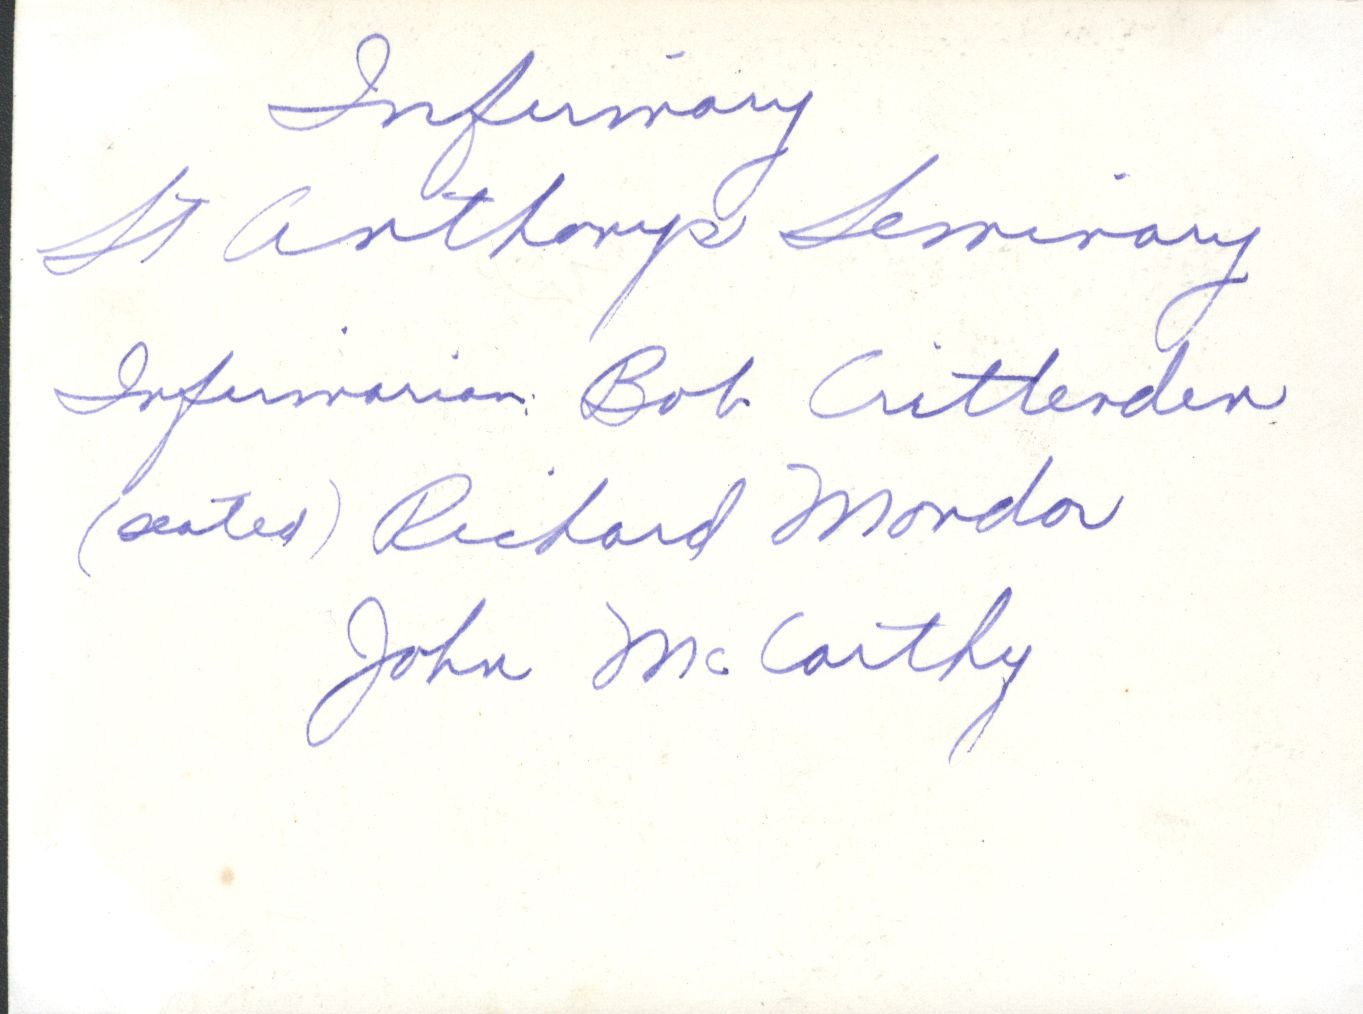 Infirmary
St Anthonys Seminary
Infirmarian: Bob Crittenden
(seated) Richard Mondor
John McCarthy